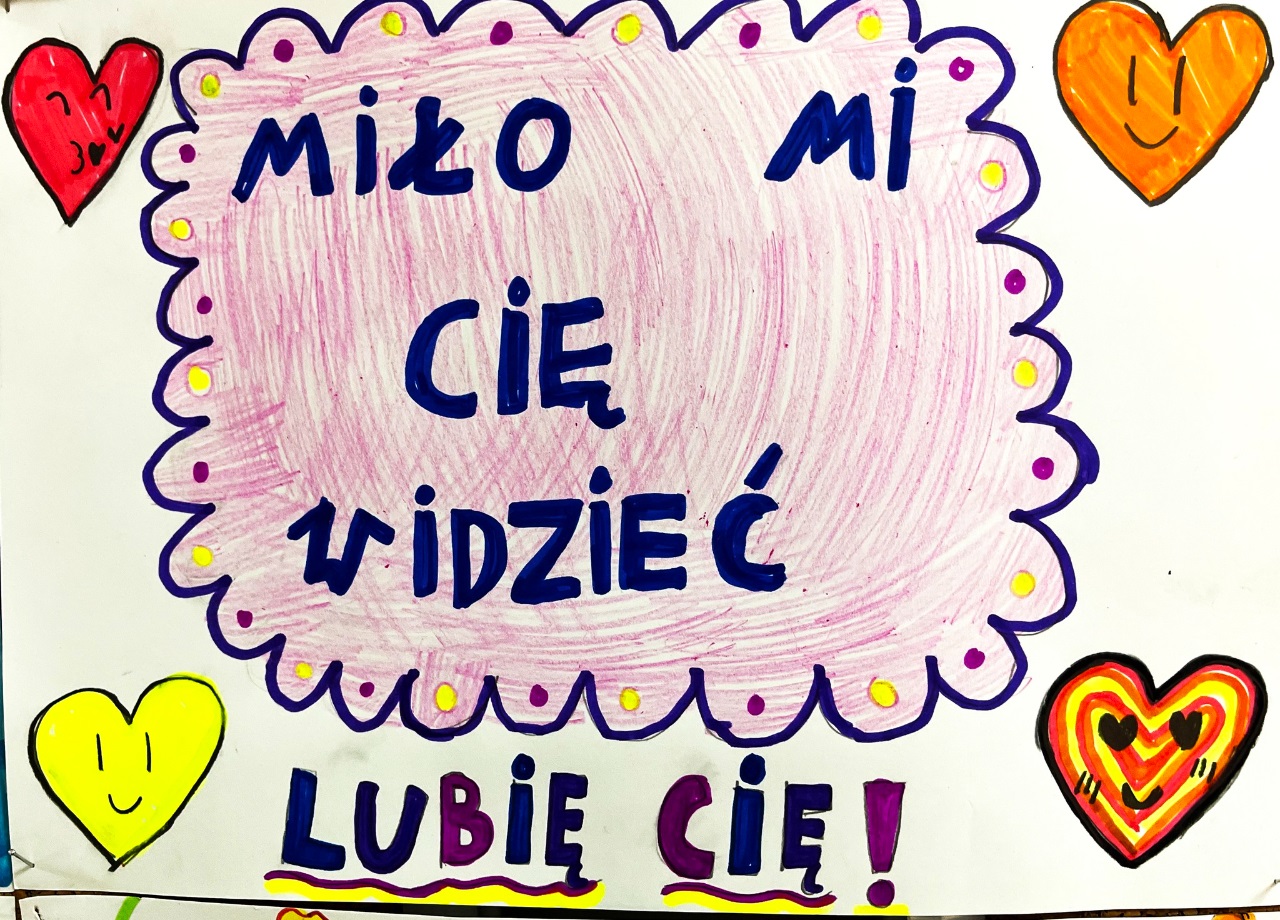 MiŁO Mi
CiĘ
WiDZiEĆ
LUBiĘ CiĘ!